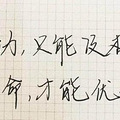 力，只能没有
命，才能优